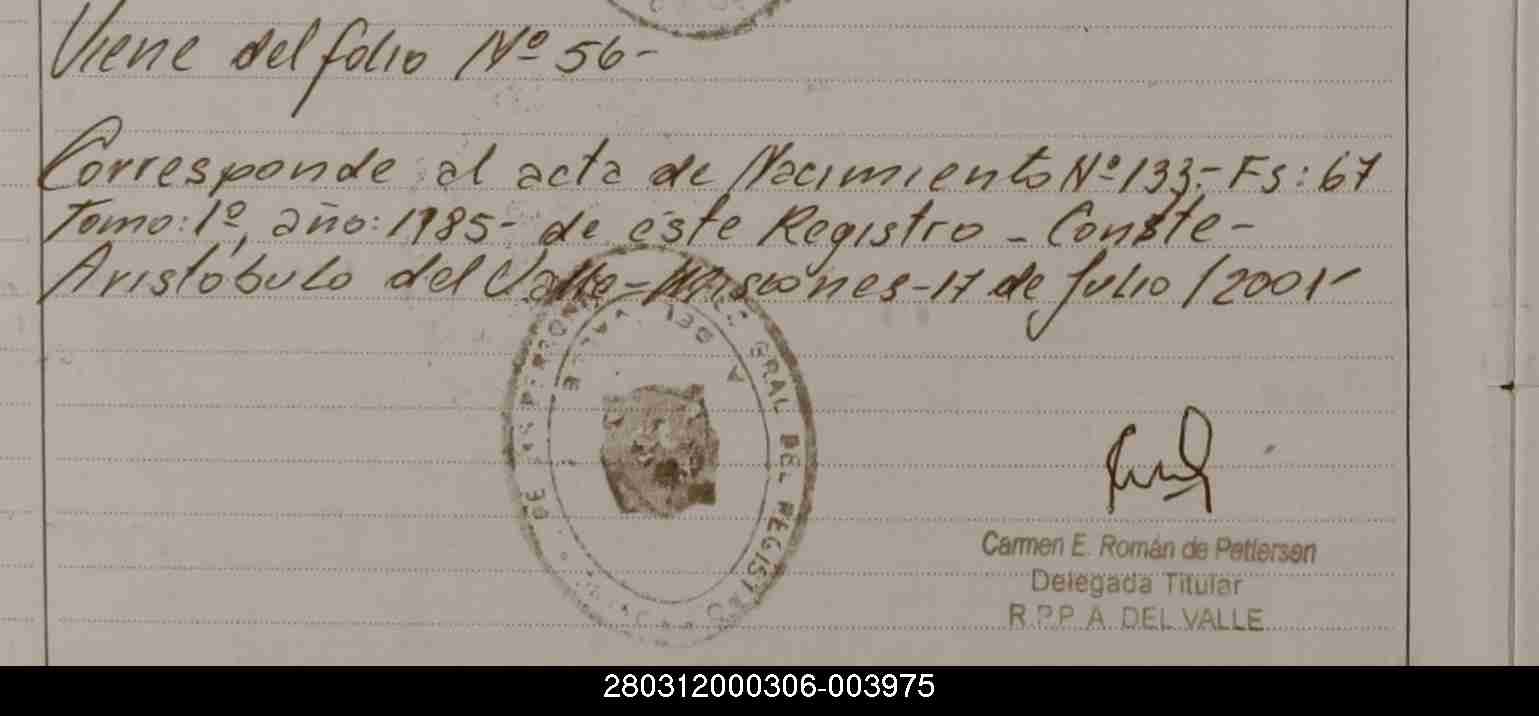 Viene del folio Nº 56-
Corresponde al acta de Nacimiento Nº 133.- Fs: 67
Tomo: 1º, año: 1985- de éste Registro - Conste -
Aristóbulo del Valle - Misiones - 17 de Julio / 2001-
GRAL DEL REGISTRO
DE LAS PERSONAS
A. DEL VALLE
Carmen E. Román de Petlersen
Delegada Titular
R.P.P. A. DEL VALLE
280312000306-003975